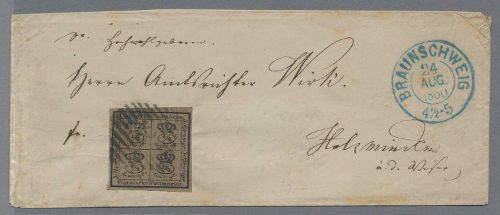 Sr. Hochwohlgeboren
Herrn Amtsrichter Wirk.
fr.
Holzminden
a. d. Weser
BRAUNSCHWEIG
24
AUG.
1860
4½-5